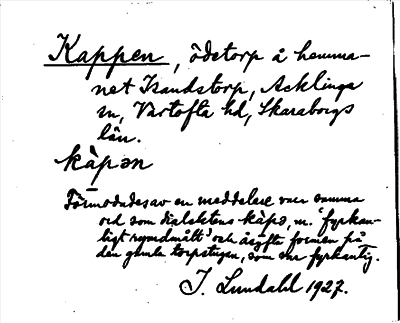 Kappen, ödetorp å hemma-
net Isandstorp, Acklinga
sn, Vartofta hd, Skaraborgs
län.
kàpən
Förmodades av en meddelare vara samma
ord som dialektens kàpə, m. 'fyrkan-
tigt rymdmått' och åsyfta formen på
den gamla torpstugan, som var fyrkantig.
J. Lundahl 1927.